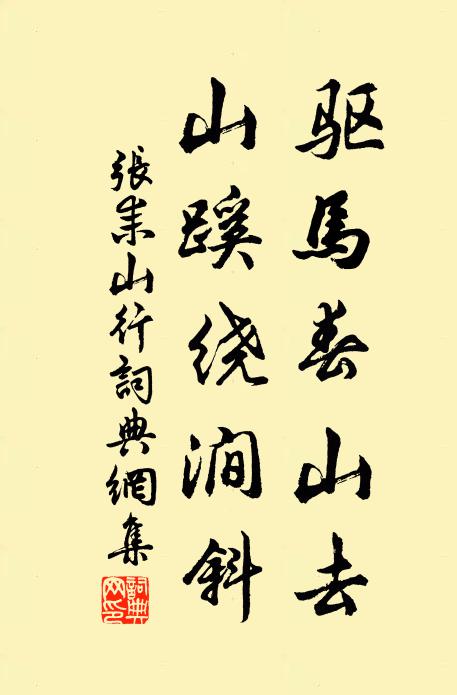 驱馬春山去
山蹊绕涧斜
張耒山行詞典網集
詞典
网印